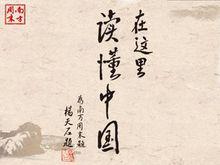 在这里
读懂中国
为南方周末题
杨天石题
南方周末